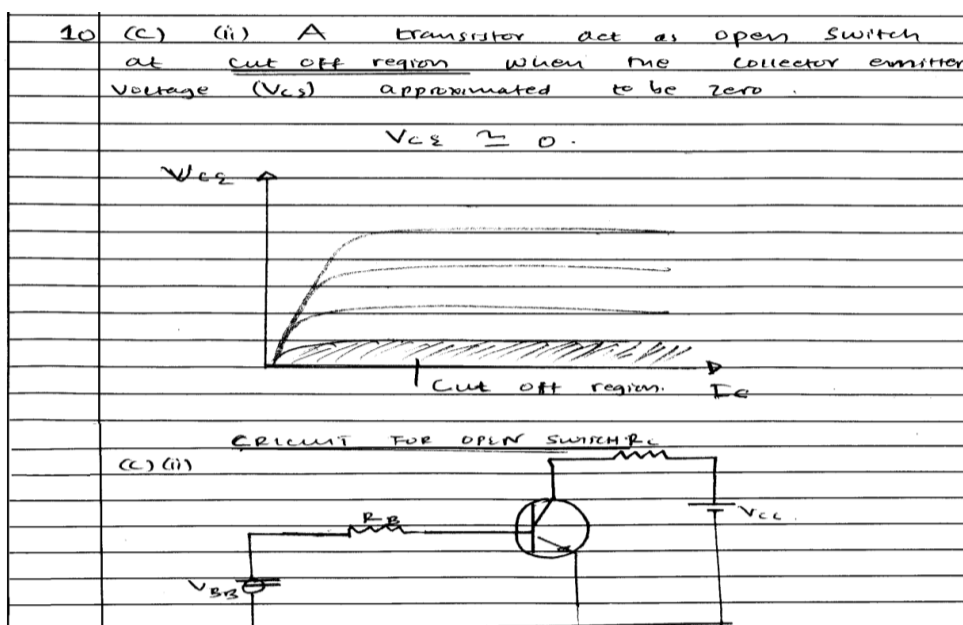 10 (c) (ii) A transistor act as open switch
at cut off region when the collector emitter
voltage (VCE) approximated to be zero.
VCE ≃ 0.
VCE
Cut off region. IC
CRICUIT FOR OPEN SWITCH. RC
(c) (ii)
RB
VCC.
VBB